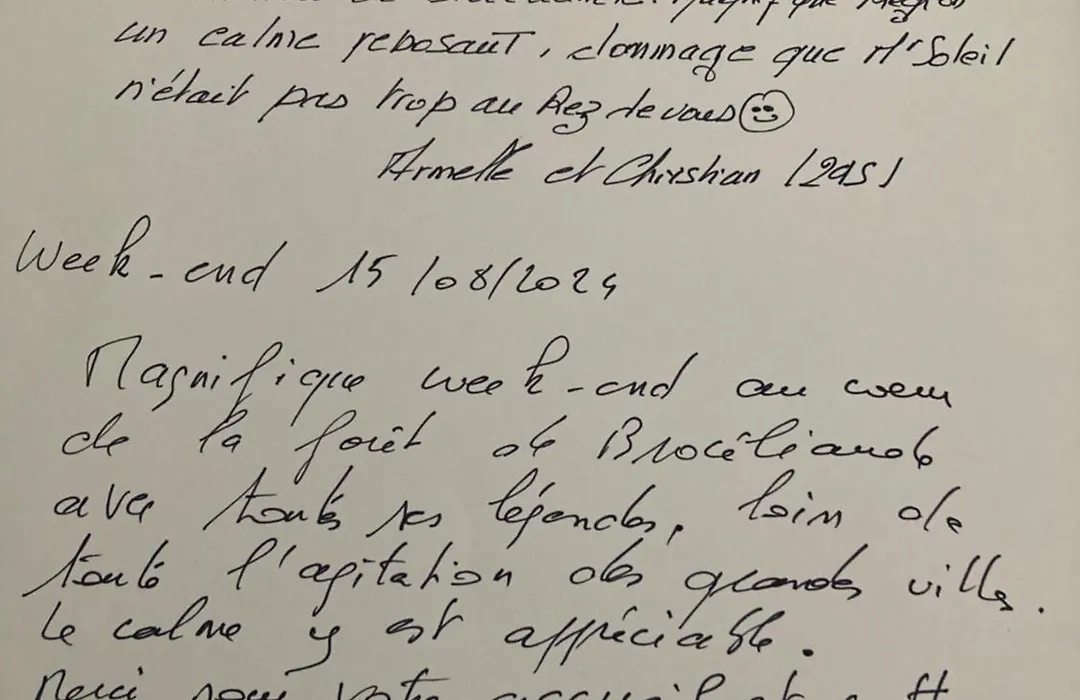 de Brocéliande. Magnifique Région
un calme reposant, dommage que Mr Soleil
n'était pas trop au Rez de vous
Armelle et Christian (29S)
Week-end 15/08/2024
Magnifique week-end au coeur
de la forêt de Brocéliande
avec toutes ses légendes, loin de
toute l'agitation des grandes villes.
Le calme y est appréciable.
Merci pour votre accueil et